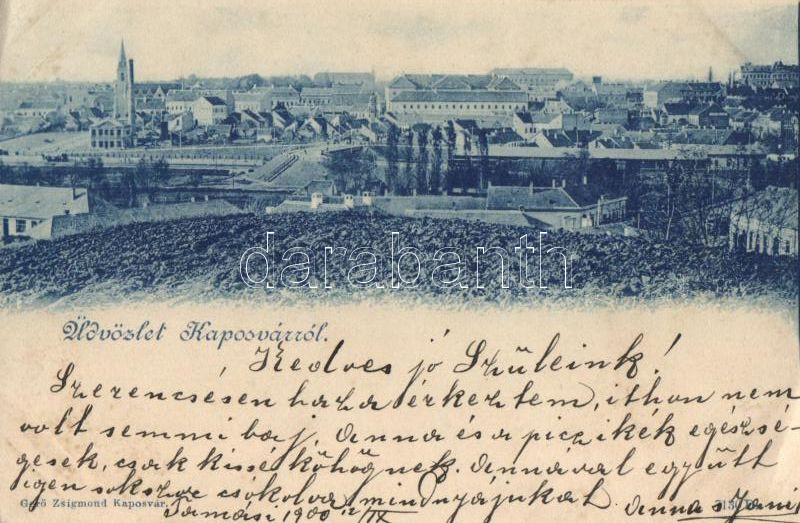 darabanth
Üdvözlet Kaposvárról.
Kedves jó Szüleink!
Szerencsésen haza érkeztem, itthon nem
volt semmi baj, Anna és a piczikék egészsé-
gesek, csak kissé köhögnek. Annával együtt
igen sokszor csókolva mindnyájukat Anna s
Gerő Zsigmond Kaposvár.
Tamási 1900 12/IX